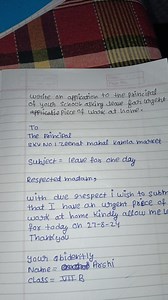 write an application to the principal
of your school asking leave for urgent
piece of work at home.
To
The Principal
SKV No.1 Zeenat mahal Kamla market
Subject = leave for one day
Respected madam,
With due respect i wish to subm
that I have an urgent piece of
work at home Kindly allow me
for today on 27-8-24
Thankyou
Your obidently
Name = Arshi
Class = VIII B